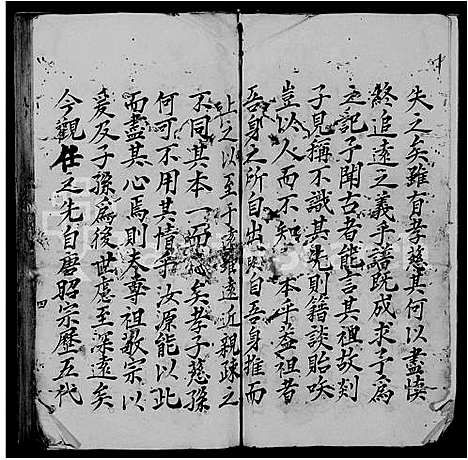 失之矣雖有孝慈其何以盡慎
終追遠之義乎譜既成求子為
之記子聞古者能言其祖故剡
子見稱不識其先則籍談貽誚
豈以人而不知本乎蓋祖者
吾身之所自出族自吾身推而
上之以至于遠雖遠近親疎之
不同其本一而已矣孝子慈孫
何可不用其情乎汝源能以此
而盡其心焉則夫尊祖敬宗以
爰及子孫為後世慮至深遠矣
今觀任之先自唐昭宗歷五代
四